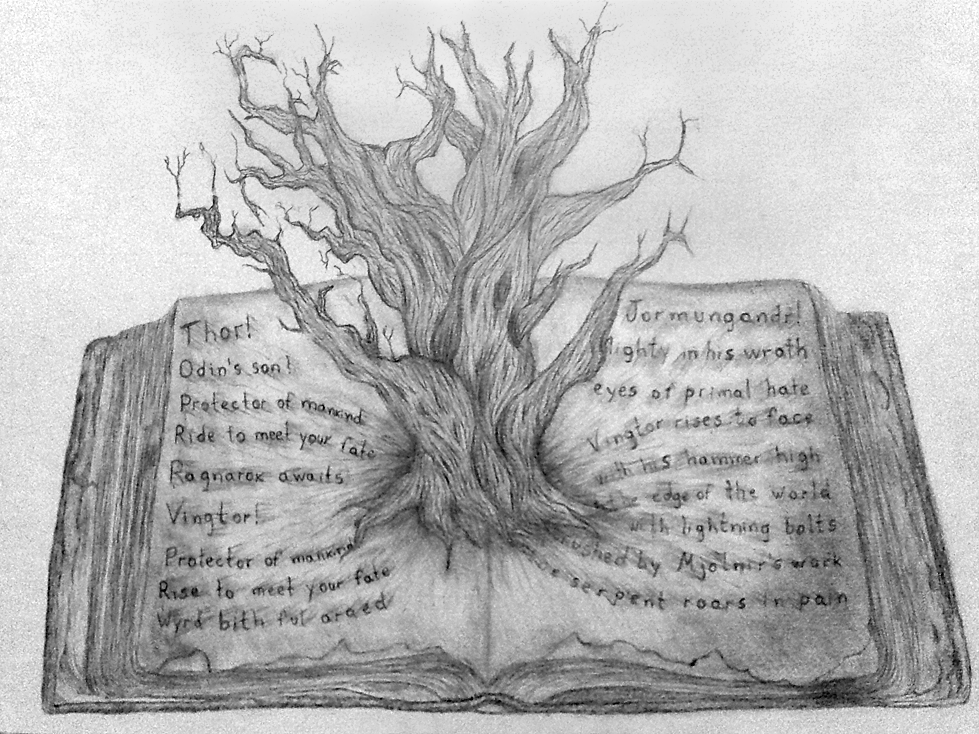 Thor!
Odin's son!
Protector of mankind
Ride to meet your fate
Ragnarok awaits
Vingtor!
Protector of mankind
Rise to meet your fate
Wyrd bith ful araed
Jormungandr!
Mighty in his wrath
eyes of primal hate
Vingtor rises to face
with his hammer high
the edge of the world
with lightning bolts
crushed by Mjolnir's work
serpent roars in pain